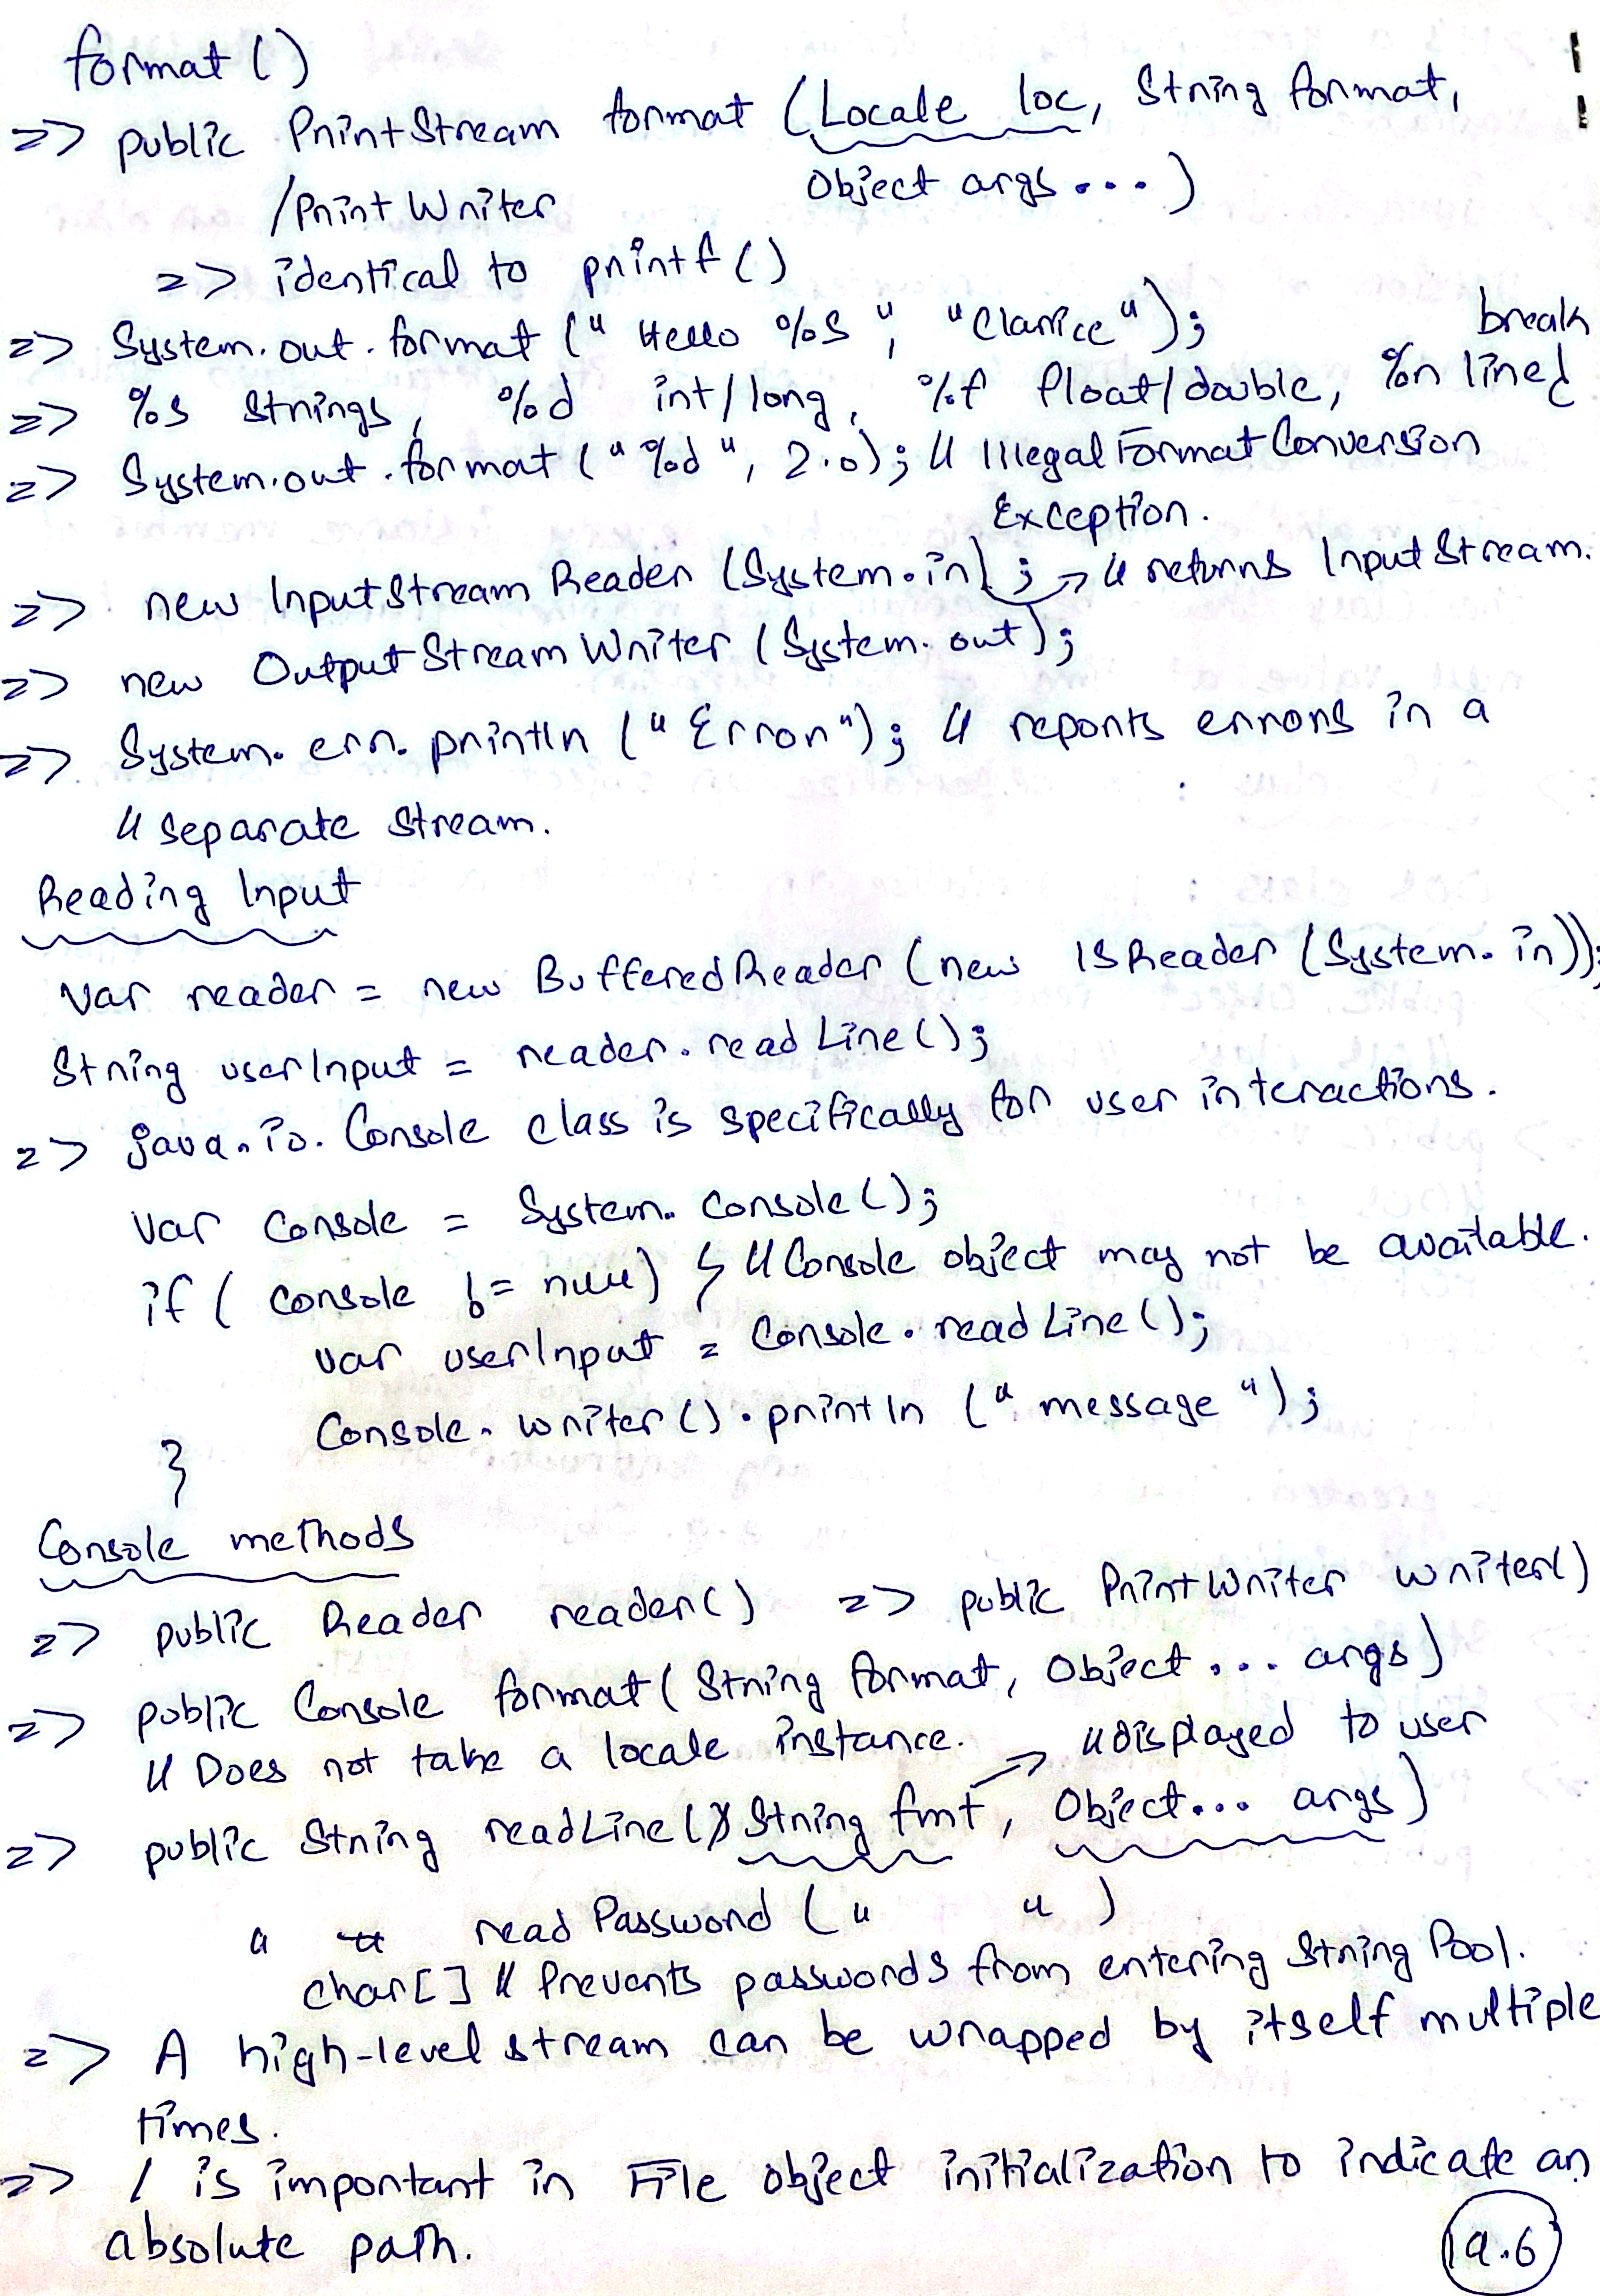 format ()
=> public PrintStream format (Locale loc, String format,
/PrintWriter Object args ...)
=> identical to printf ()
=> System.out.format ("Hello %s", "Clarice");
break
=> %s strings, %d int/long, %f float/double, %n line
=> System.out.format ("%d", 2.0); // IllegalFormatConversion
Exception.
=> new InputStreamReader (System.in); → // returns InputStream.
=> new OutputStreamWriter (System.out);
=> System.err.println ("Error"); // reports errors in a
// separate stream.
Reading Input
var reader = new BufferedReader (new ISReader (System.in));
String userInput = reader.readLine();
=> java.io.Console class is specifically for user interactions.
var console = System.console();
if ( console != null) { // Console object may not be available.
var userInput = console.readLine();
console.writer().println ("message");
}
Console methods
=> public Reader reader() => public PrintWriter writer()
=> public Console format (String format, Object ... args)
// Does not take a locale instance. → // displayed to user
=> public String readLine (String fmt, Object... args)
" readPassword (" ")
char[] // Prevents passwords from entering String Pool.
=> A high-level stream can be wrapped by itself multiple
times.
=> / is important in File object initialization to indicate an
absolute path.
19.6